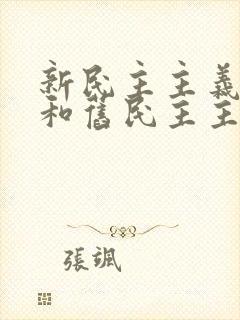 新民主主義
和舊民主主
張颯